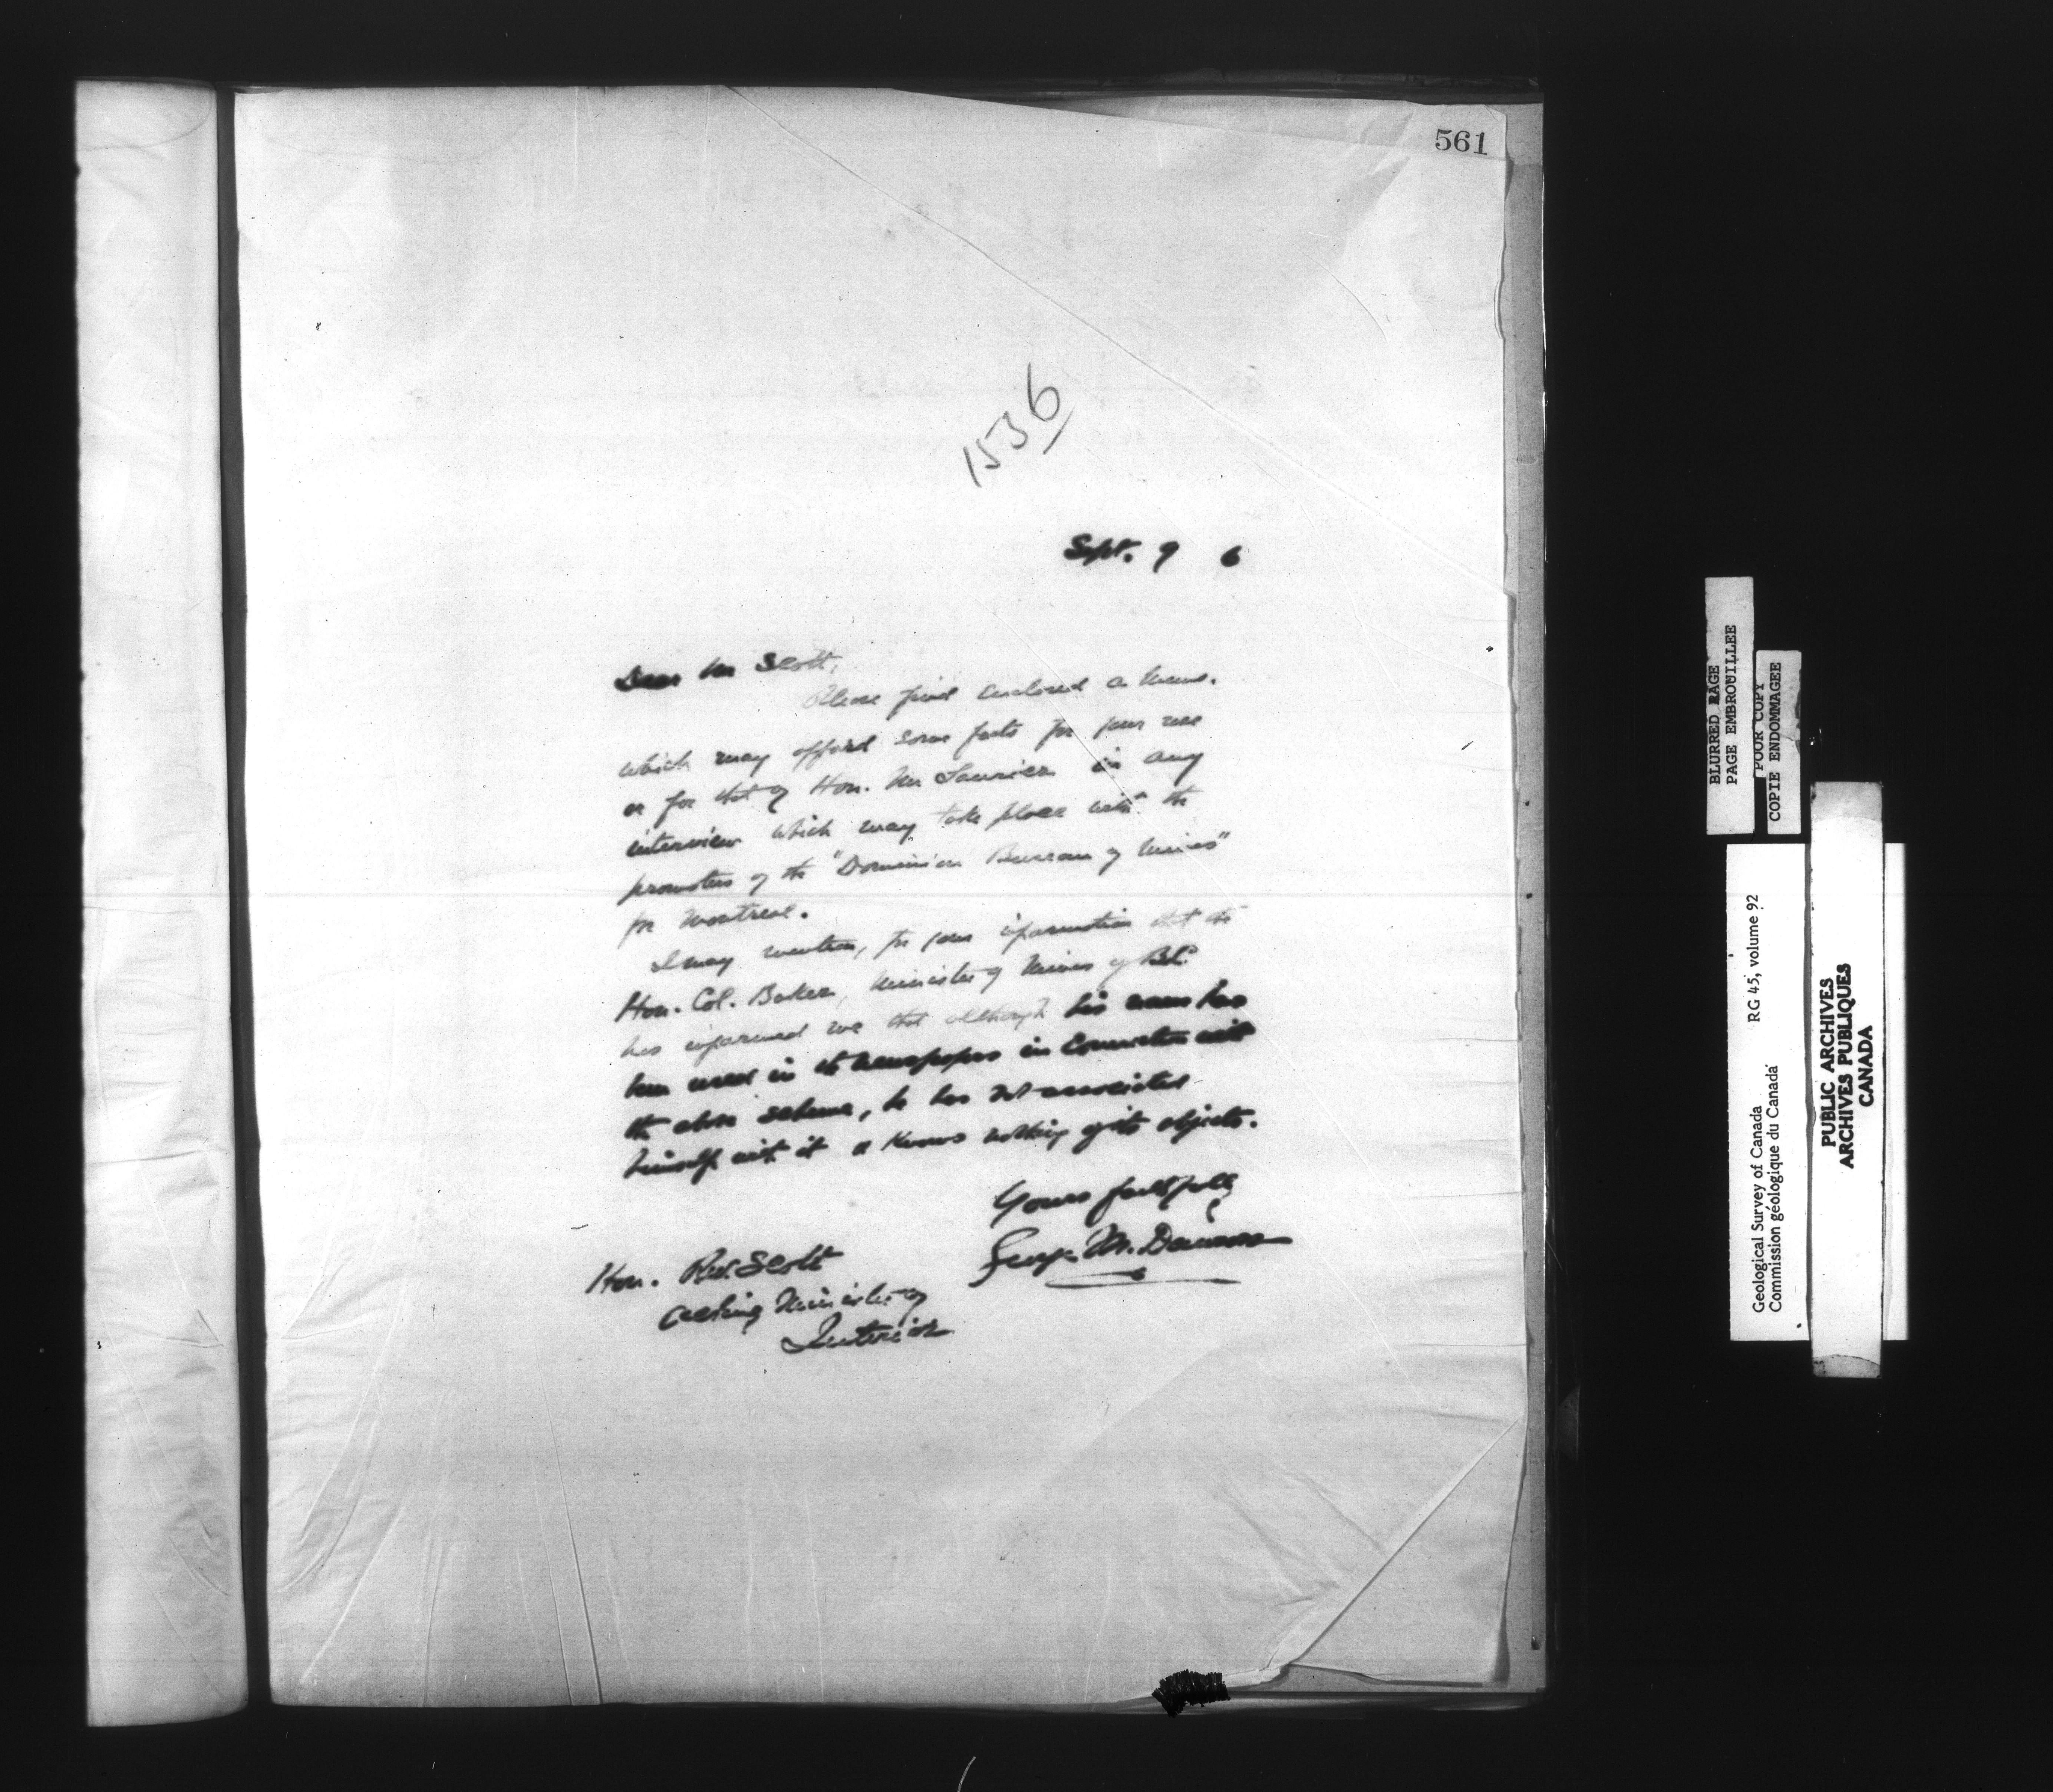 561
1536
Sept. 9 6
Dear Mr Scott,
Please find enclosed a memo.
which may afford some facts for your use
or for that of Hon. Mr Laurier in any
interview which may take place with the
promoters of the "Dominion Bureau of Mines"
for Montreal.
I may mention, for your information that the
Hon. Col. Baker, Minister of Mines of B.C.
has informed me that although his name has
been used in the newspapers in connection with
the above scheme, he has not associated
himself with it or knows nothing of its objects.
Yours faithfully
George M. Dawson
Hon. R.W. Scott
Acting Minister of
Interior
BLURRED PAGE
PAGE EMBROUILLEE
POOR COPY
COPIE ENDOMMAGEE
Geological Survey of Canada RG 45, volume 92
Commission géologique du Canada
PUBLIC ARCHIVES
ARCHIVES PUBLIQUES
CANADA